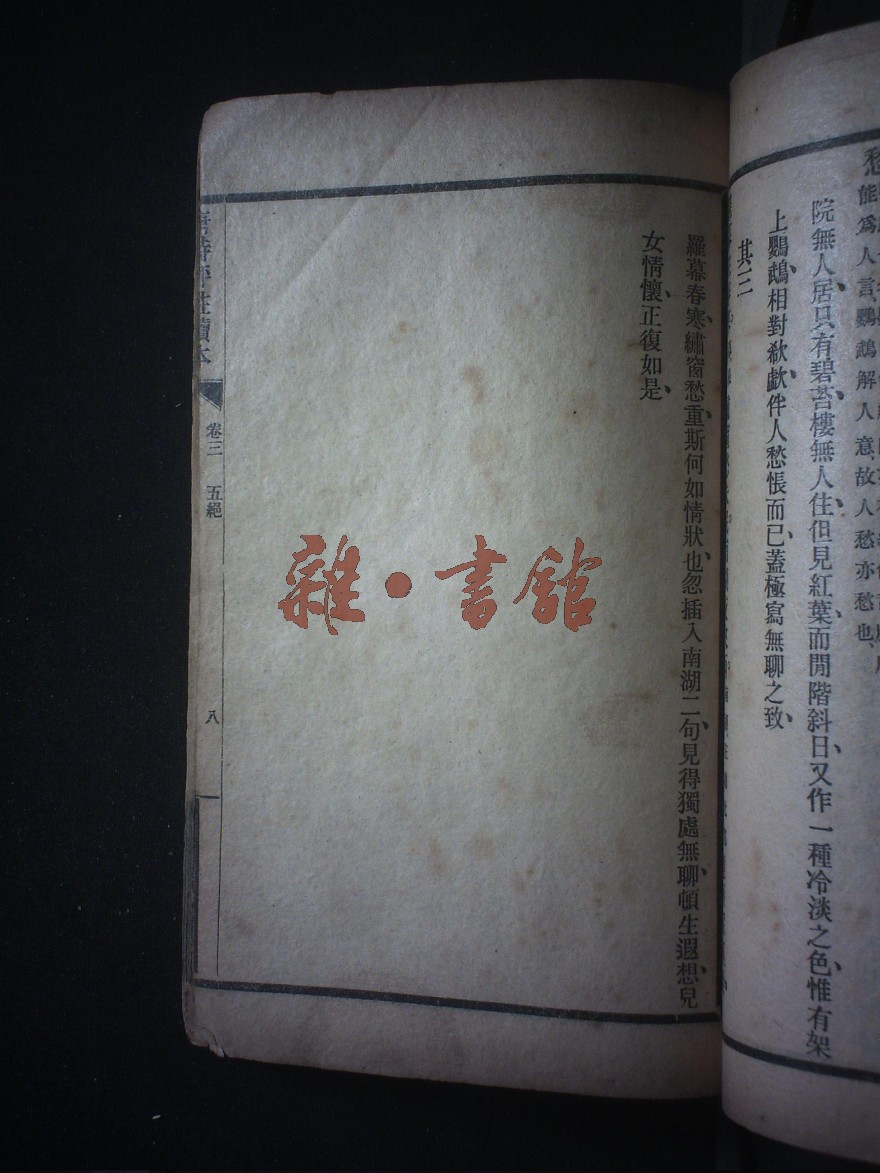 能爲人言、鸚鵡解人意、故人愁亦愁也、
院無人居、只有碧苔、樓無人住、但見紅葉、而閒階斜日、又作一種冷淡之色、惟有架
上鸚鵡、相對欷歔、伴人愁悵而已、蓋極寫無聊之致、
其三
羅幕春寒、繡窗愁重、斯何如情狀也、忽插入南湖二句、見得獨處無聊、頓生遐想、兒
女情懷、正復如是、
評註讀本
卷三 五絕
八
雜·書館